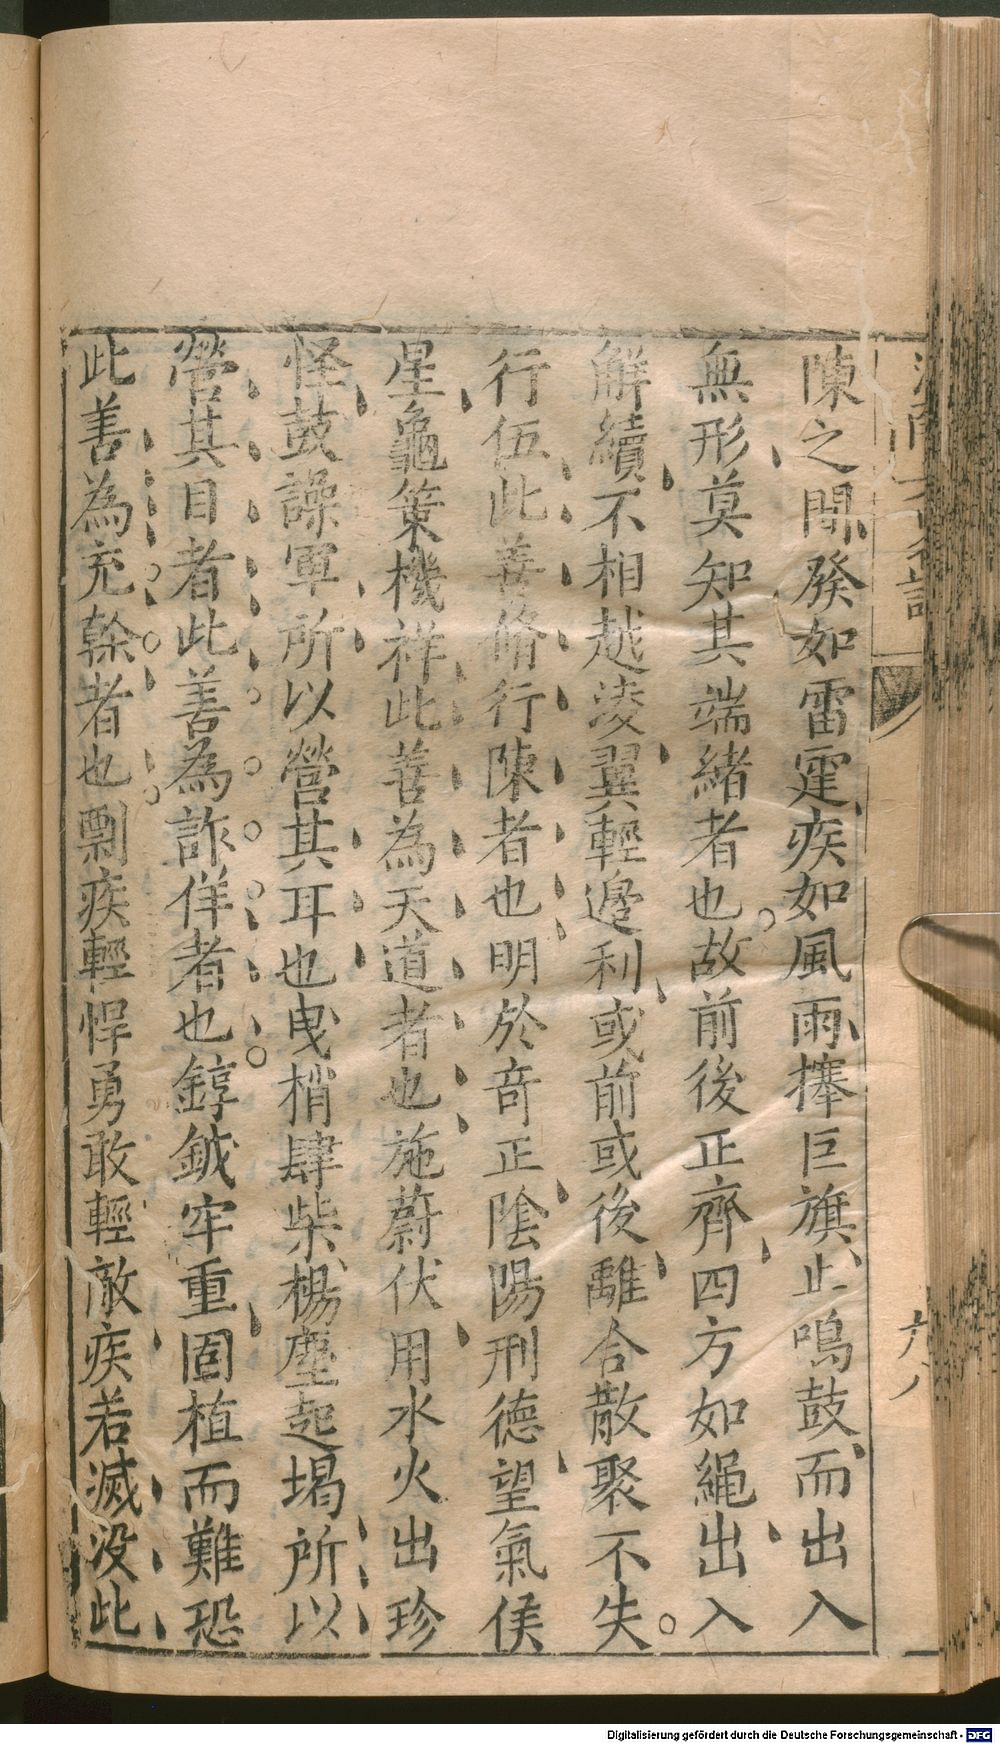 陳之間發如雷霆疾如風雨搴巨旗止鳴鼓而出入
無形莫知其端緒者也故前後正齊四方如繩出入
解續不相越凌翼輕邊利或前或後離合散聚不失
行伍此善脩行陳者也明於竒正陰陽刑德望氣候
星龜策機祥此善為天道者也施蔚伏用水火出珍
怪鼓譟軍所以營其耳也曳梢肆柴楊塵起堨所以
營其目者此善為詐佯者也錞鉞牢重固植而難恐
此善為充榦者也剽疾輕悍勇敢輕敵疾若滅没此
Digitalisierung gefördert durch die Deutsche Forschungsgemeinschaft - DFG